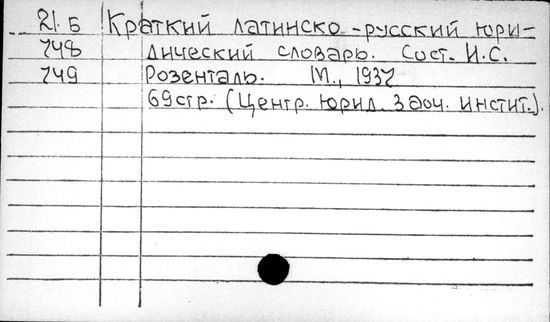 21. Б Краткий латинско-русский юри-
748 дический словарь. Сост. И.С.
749 Розенталь. М., 1937
69стр. (Центр. юрид. заоч. инстит.).